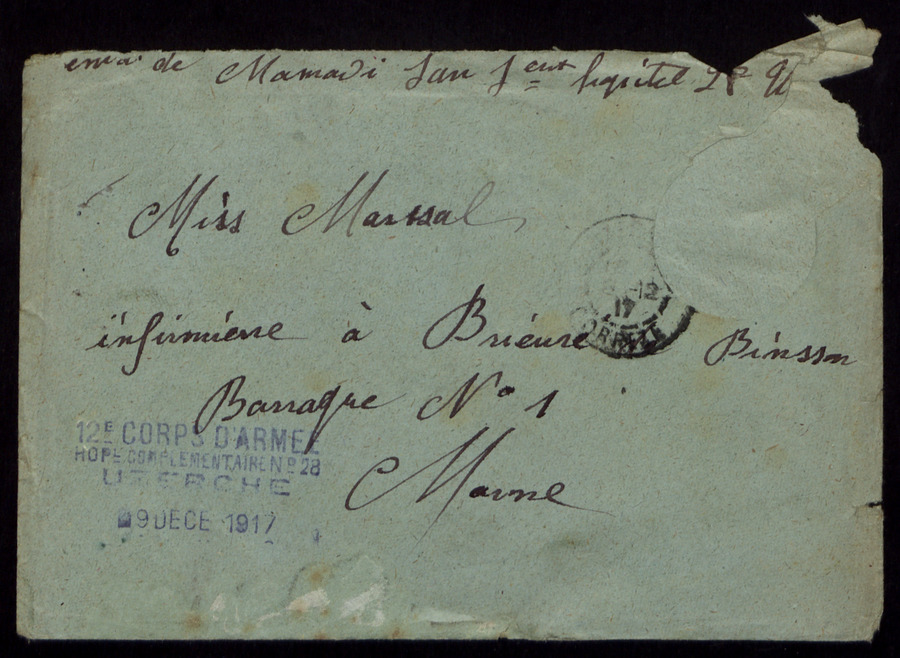 de Mamadi San hopitel
Miss Marssal
infirmiere à Brieure Binsson
Barraque Nº 1
Marne
12E CORPS D'ARMEE
HOP. COMPLEMENTAIRE Nº 28
UZERCHE
9 DECE 1917
12
17
CORREZE